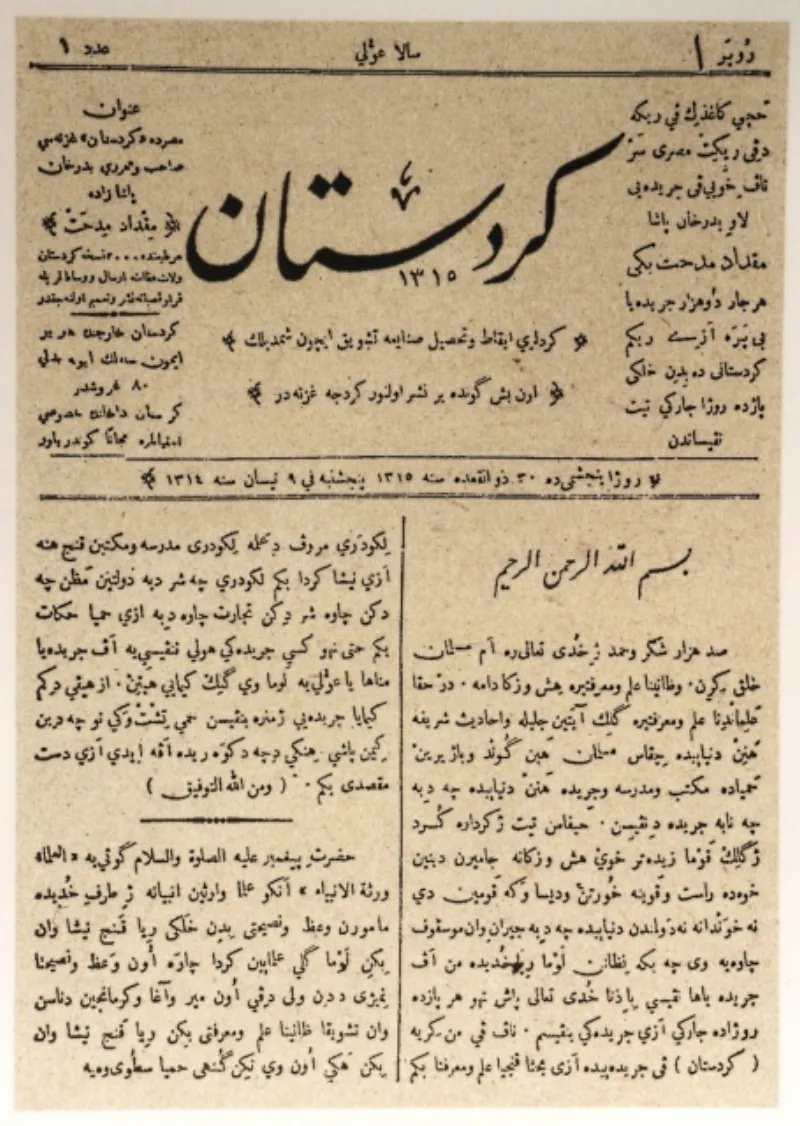 رُوپَر ١
سالا عوّلي
عدد ١
كردستان
١٣١٥
حچي كاغذيك في ريكه
دڤي ريكت مصرى سَرْ
ناڤ خُوييَ ڤى جريده يى
لاو بدرخان پاشا
مقداد مدحت بكى
هر جار دُوهزار جريده يا
بى پَرَه آزى ريكم
كردستانى ده بدِن خلكى
پازده روژا جاركى تيت
نڤيساندن
عنوان
مصرده «كردستان» غزته سي
صاحب ومحررى بدرخان
پاشا زاده
﴿ مِقْداد مِدحَتْ ﴾
هر نسخه كردستان
ولات ارسال و وساطتله
قرا و قصباته نشر و تعميم اولنه جقدر
كردستان خارجنده هر ير
ايچون سنه لك ابونه بدلي
٨٠ غروشدر
كردستان داخلنده خصوصي
مجاناً كوندريلور
﴿ كردلري ايقاظ وتحصيل صنايعه تشويق ايچون شمديلك ﴾
﴿ اون بش كونده بر نشر اولنور كردجه غزته در ﴾
﴿ روژا پنجشى ده ٣٠ ذو القعده سنه ١٣١٥ پنجشنبه في ٩ نيسان سنه ١٣١٤ ﴾
بسم الله الرحمن الرحيم
صد هزار شكر وحمد ژ خُدى تعالى ره آم مسلمان
خلق كِرِن. وظانينا علم ومعرفتيره هش و زكا دامه. در حقا
علماندِنا علم ومعرفتيره گلك آيتين جليله واحاديث شريفه
هَنِنْ دنيايیده چقاس مسلمان هَين گُوند وباژيرين
حميانده مكتب ومدرسه وجريده هَنن دنيايیده چه دبه
چه نابه جريده دنڤيسن. حيفامن تيت ژ كرداره كُرد
ژ گلك قوما زيده تر خوىْ هش و زكانه جاميرن دينين
خوده راست وقوينه خُورتن وديسا وكه قومين دي
نه خوَندانه نه دَولمندن دنيايیده چه دبه جيران وان موسقوف
چاوه يه وى چه بكه نظانن لَوما ريا خُديده من اَڤ
جريده ياها نڤيسي پاذنا خُدى تعالى پاش نهو هر پازده
روژاده جاركى آزي جريده كي بنڤيسم. ناڤ ڤي من كريه
( كردستان ) ڤى جريده يیده آزي بحثا قنجيا علم ومعرفتا بكم
لكودَري مروڤ دِ حَمله لكودرى مدرسه ومكتبين قنج هنه
آزي نيشا كردا بكم لكودري چه شر دبه دولتين مَظن چه
دكن چاوه شر دِكن تجارت چاوه دبه ازي حميا حكات
بكم حتى نهو كسى جريده كي هولي ننڤيسي يه اَڤ جريده يا
مناها يا عوّلي يه لَوما وي گلك كيماىي هبِن. از هيڤي دركم
كيمايا جريده يى ژمنره بنڤيسن حمي تِشْت وَكي نو چه دبن
كين باشي. هنكي دچه دكوَه ريده اڤه ايدي آزي دست
مقصدى بكم. ( ومن الله التوفيق )
حضرت پيغمبر عليه الصلوة والسلام گوتي يه « العلماء
ورثة الانبياء » اَنكو علما وارثين انبيانه ژ طرف خُديده
مامورن وعظ ونصيحتى بدِن خَلكى ريا قَنج نيشا وان
بِكِن لَوما گلي علمايين كردا چاره اُون وَعظ ونصيحتا
نميزى ددرن ولى درڤي اُون مير وآغا وكرمانجين دناسن
وان تشويقا ظانينا علم ومعرفتى بِكن ريا قَنج نيشا وان
بِكن هَكي اُون وي نَكِن گُنهى حميا سطُوى وه يه